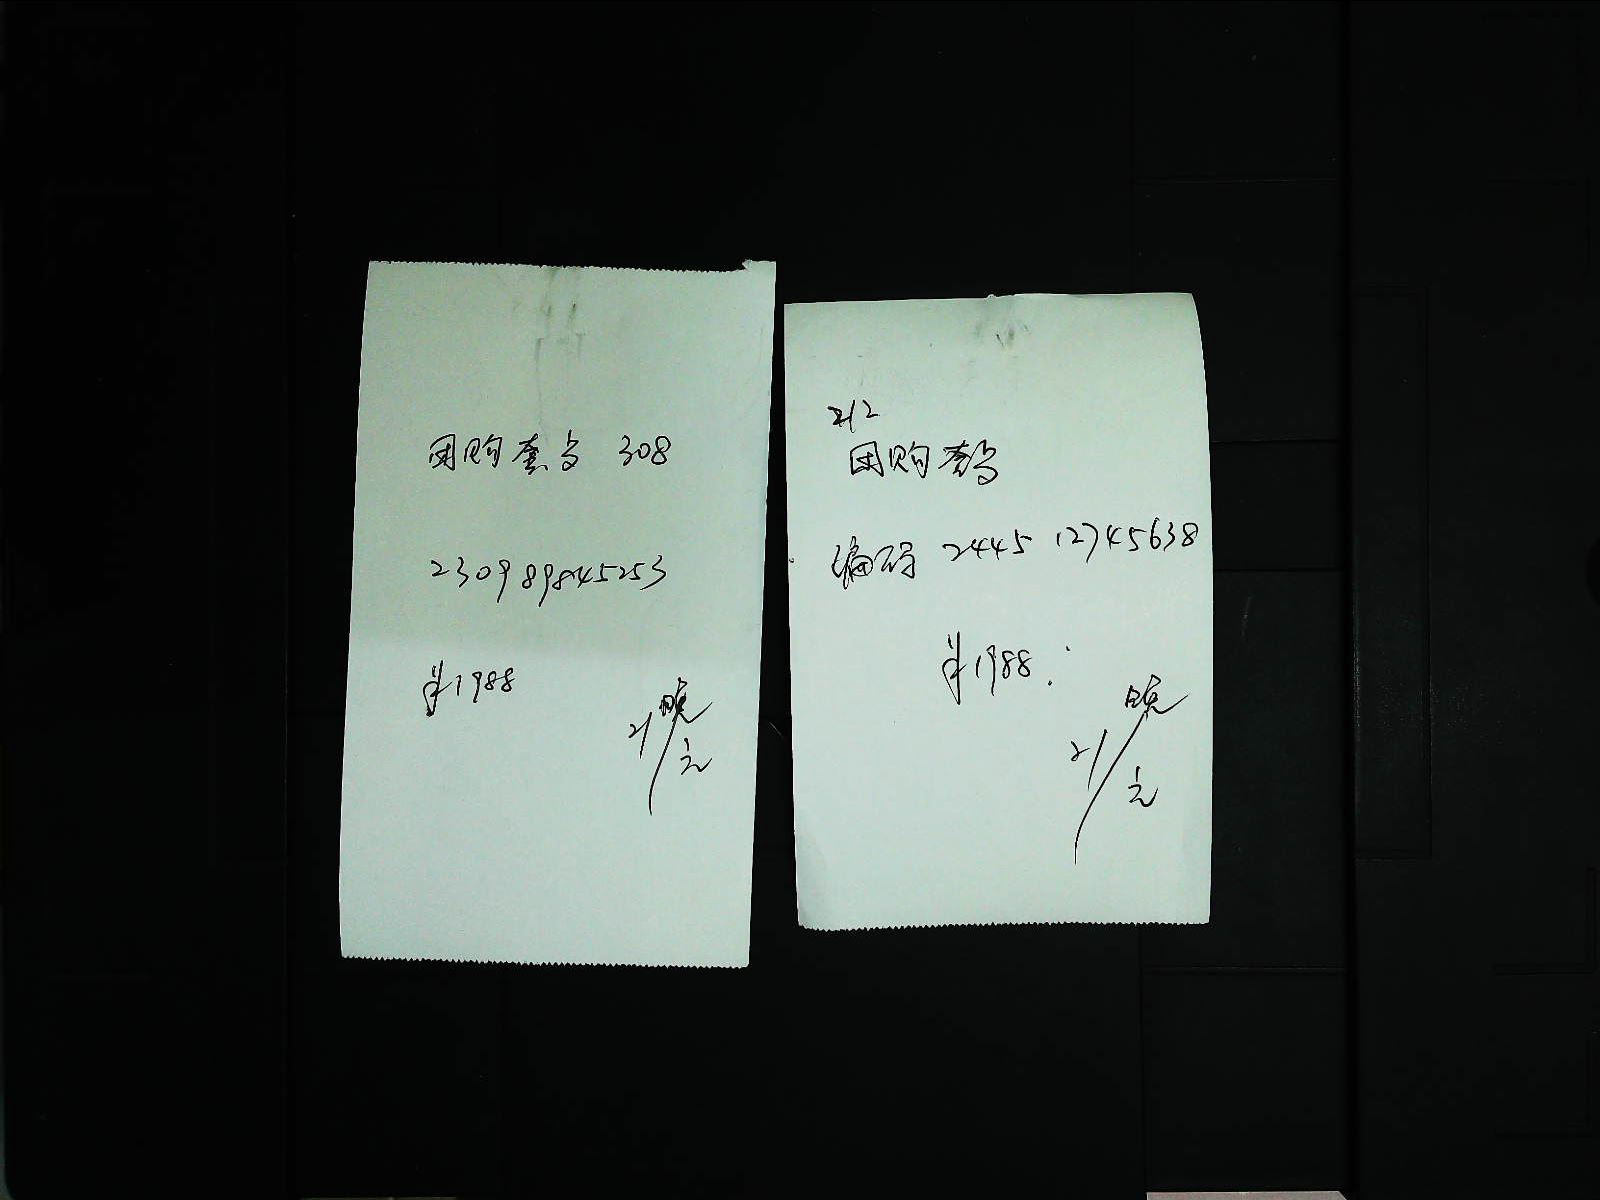 团购套号 308
230989845253
¥1988
21/晓元
212
团购套号
编码 2445 12745638
¥1988
21/晓元